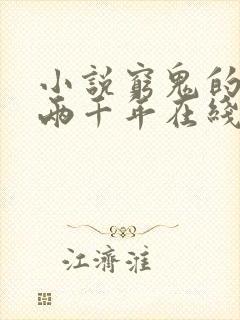 小說窮鬼的
兩千年在綫
江濟淮